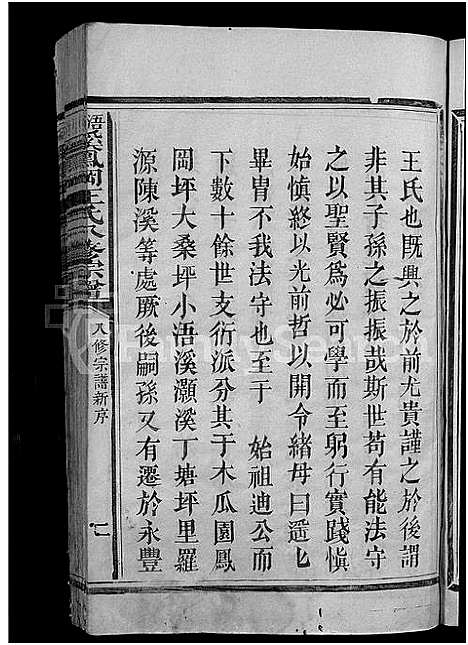 王氏也既興之於前尤貴謹之於後謂
非其子孫之振振哉斯世苟有能法守
之以聖賢爲必可學而至躬行實踐愼
始愼終以光前哲以開令緒母曰遥乜
畢冑不我法守也至于 始祖迪公而
下數十餘世支衍派分其于木瓜園鳳
岡坪大桑坪小浯溪灝溪丁塘坪里羅
源陳溪等處厥後嗣孫又有遷於永豐
鳳岡王氏八修宗譜
八修宗譜新序
FamilySearch